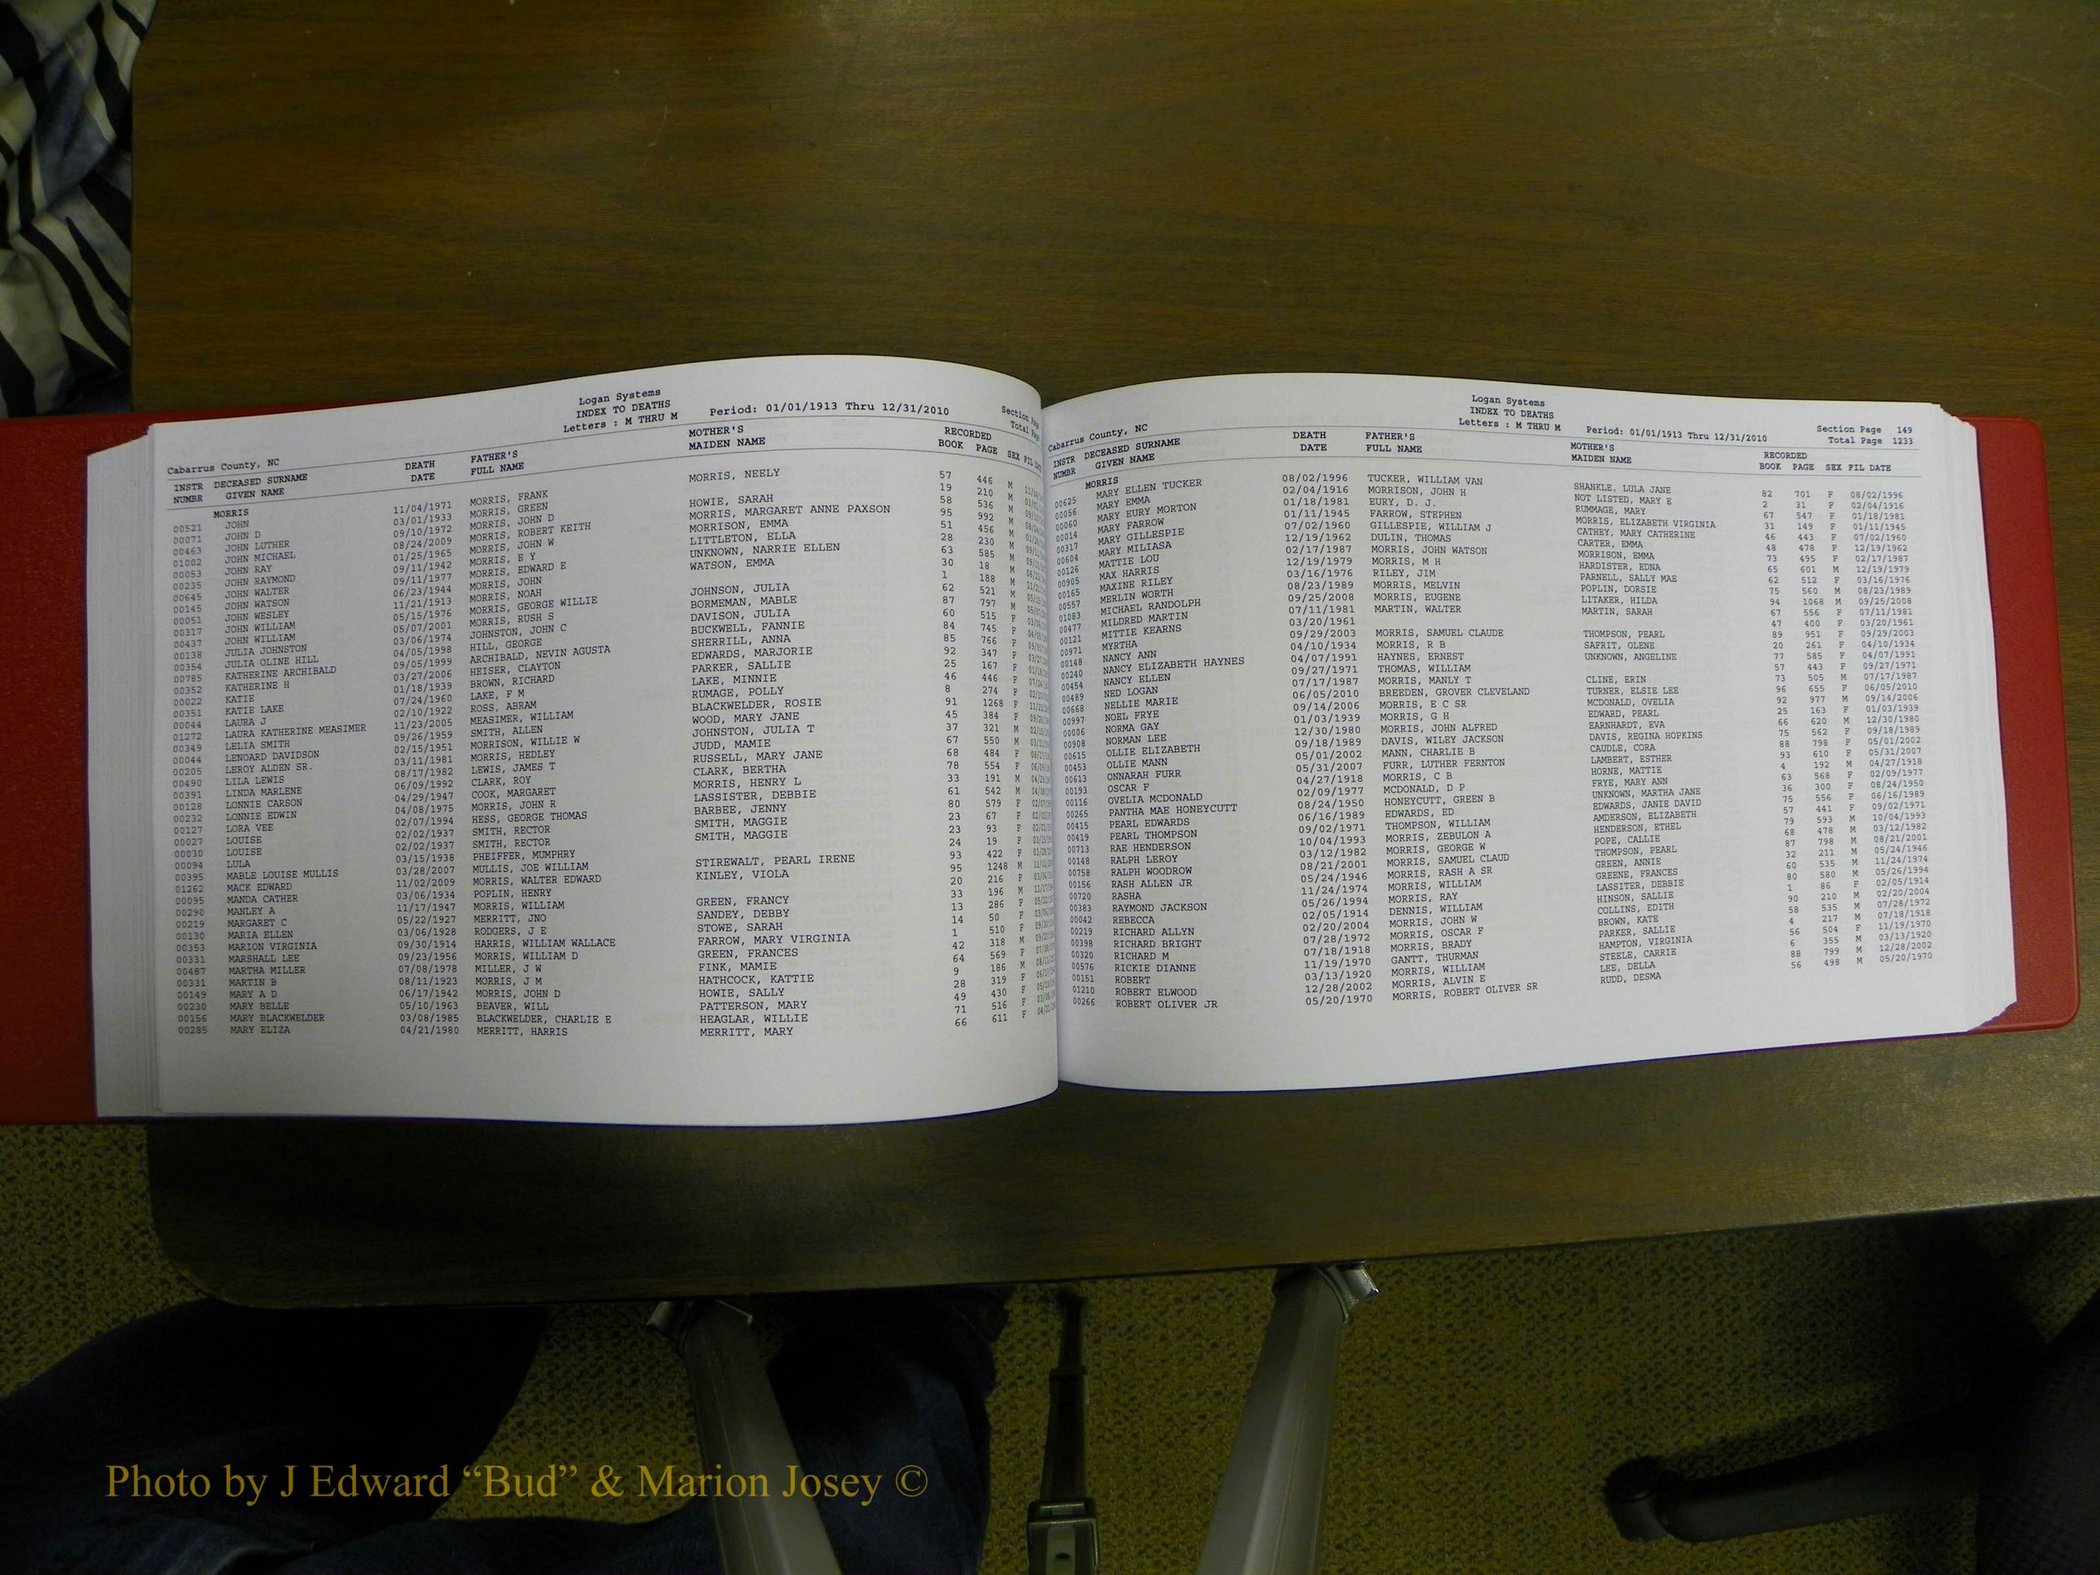 Logan Systems
INDEX TO DEATHS
Letters : M THRU M Period: 01/01/1913 Thru 12/31/2010 Section Page
Cabarrus County, NC Total
INSTR DECEASED SURNAME DEATH FATHER'S MOTHER'S RECORDED
NUMBR GIVEN NAME DATE FULL NAME MAIDEN NAME BOOK PAGE SEX FIL DATE
MORRIS
00521 JOHN 11/04/1971 MORRIS, FRANK MORRIS, NEELY 57 446 M
00071 JOHN D 03/01/1933 MORRIS, GREEN 19 210 M
00463 JOHN LUTHER 09/10/1972 MORRIS, JOHN D HOWIE, SARAH 58 536 M
01002 JOHN MICHAEL 08/24/2009 MORRIS, ROBERT KEITH MORRIS, MARGARET ANNE PAXSON 95 992 M
00053 JOHN RAY 01/25/1965 MORRIS, JOHN W MORRISON, EMMA 51 456 M
00235 JOHN RAYMOND 09/11/1942 MORRIS, E Y LITTLETON, ELLA 28 230 M
00645 JOHN WALTER 09/11/1977 MORRIS, EDWARD E UNKNOWN, NARRIE ELLEN 63 585 M
00145 JOHN WATSON 06/23/1944 MORRIS, JOHN WATSON, EMMA 30 18 M
00051 JOHN WESLEY 11/21/1913 MORRIS, NOAH 1 188 M
00317 JOHN WILLIAM 05/15/1976 MORRIS, GEORGE WILLIE JOHNSON, JULIA 62 521 M
00437 JOHN WILLIAM 05/07/2001 MORRIS, RUSH S BORMEMAN, MABLE 87 797 M
00138 JULIA JOHNSTON 03/06/1974 JOHNSTON, JOHN C DAVISON, JULIA 60 515 F
00354 JULIA OLINE HILL 04/05/1998 HILL, GEORGE BUCKWELL, FANNIE 84 745 F
00785 KATHERINE ARCHIBALD 09/05/1999 ARCHIBALD, NEVIN AGUSTA SHERRILL, ANNA 85 766 F
00352 KATHERINE H 03/27/2006 HEISER, CLAYTON EDWARDS, MARJORIE 92 347 F
00022 KATIE 01/18/1939 BROWN, RICHARD PARKER, SALLIE 25 167 F
00351 KATIE LAKE 07/24/1960 LAKE, F M LAKE, MINNIE 46 446 F
00044 LAURA J 02/10/1922 ROSS, ABRAM RUMAGE, POLLY 8 274 F
01272 LAURA KATHERINE MEASIMER 11/23/2005 MEASIMER, WILLIAM BLACKWELDER, ROSIE 91 1268 F
00349 LELIA SMITH 09/26/1959 SMITH, ALLEN WOOD, MARY JANE 45 384 F
00044 LENOARD DAVIDSON 02/15/1951 MORRISON, WILLIE W JOHNSTON, JULIA T 37 321 M
00205 LEROY ALDEN SR. 03/11/1981 MORRIS, HEDLEY JUDD, MAMIE 67 550 M
00490 LILA LEWIS 08/17/1982 LEWIS, JAMES T RUSSELL, MARY JANE 68 484 F
00391 LINDA MARLENE 06/09/1992 CLARK, ROY CLARK, BERTHA 78 554 F
00128 LONNIE CARSON 04/29/1947 COOK, MARGARET MORRIS, HENRY L 33 191 M
00232 LONNIE EDWIN 04/08/1975 MORRIS, JOHN R LASSISTER, DEBBIE 61 542 M
00127 LORA VEE 02/07/1994 HESS, GEORGE THOMAS BARBEE, JENNY 80 579 F
00027 LOUISE 02/02/1937 SMITH, RECTOR SMITH, MAGGIE 23 67 F
00030 LOUISE 02/02/1937 SMITH, RECTOR SMITH, MAGGIE 23 93 F
00094 LULA 03/15/1938 PHEIFFER, MUMPHRY 24 19 F
00395 MABLE LOUISE MULLIS 03/28/2007 MULLIS, JOE WILLIAM STIREWALT, PEARL IRENE 93 422 F
01262 MACK EDWARD 11/02/2009 MORRIS, WALTER EDWARD KINLEY, VIOLA 95 1248 M
00095 MANDA CATHER 03/06/1934 POPLIN, HENRY 20 216 F
00290 MANLEY A 11/17/1947 MORRIS, WILLIAM GREEN, FRANCY 33 196 M
00219 MARGARET C 05/22/1927 MERRITT, JNO SANDEY, DEBBY 13 286 F
00130 MARIA ELLEN 03/06/1928 RODGERS, J E STOWE, SARAH 14 50 F
00353 MARION VIRGINIA 09/30/1914 HARRIS, WILLIAM WALLACE FARROW, MARY VIRGINIA 1 510 F
00331 MARSHALL LEE 09/23/1956 MORRIS, WILLIAM D GREEN, FRANCES 42 318 M
00487 MARTHA MILLER 07/08/1978 MILLER, J W FINK, MAMIE 64 569 F
00331 MARTIN B 08/11/1923 MORRIS, J M HATHCOCK, KATTIE 9 186 M
00149 MARY A D 06/17/1942 MORRIS, JOHN D HOWIE, SALLY 28 319 F
00230 MARY BELLE 05/10/1963 BEAVER, WILL PATTERSON, MARY 49 430 F
00156 MARY BLACKWELDER 03/08/1985 BLACKWELDER, CHARLIE E HEAGLAR, WILLIE 71 516 F
00285 MARY ELIZA 04/21/1980 MERRITT, HARRIS MERRITT, MARY 66 611 F
Logan Systems
INDEX TO DEATHS
Letters : M THRU M Period: 01/01/1913 Thru 12/31/2010 Section Page 149
Cabarrus County, NC Total Page 1233
INSTR DECEASED SURNAME DEATH FATHER'S MOTHER'S RECORDED
NUMBR GIVEN NAME DATE FULL NAME MAIDEN NAME BOOK PAGE SEX FIL DATE
MORRIS
00625 MARY ELLEN TUCKER 08/02/1996 TUCKER, WILLIAM VAN SHANKLE, LULA JANE 82 701 F 08/02/1996
00056 MARY EMMA 02/04/1916 MORRISON, JOHN H NOT LISTED, MARY E 2 31 F 02/04/1916
00060 MARY EURY MORTON 01/18/1981 EURY, D. J. RUMMAGE, MARY 67 547 F 01/18/1981
00014 MARY FARROW 01/11/1945 FARROW, STEPHEN MORRIS, ELIZABETH VIRGINIA 31 149 F 01/11/1945
00317 MARY GILLESPIE 07/02/1960 GILLESPIE, WILLIAM J CATHEY, MARY CATHERINE 46 443 F 07/02/1960
00604 MARY MILIASA 12/19/1962 DULIN, THOMAS CARTER, EMMA 48 478 F 12/19/1962
00126 MATTIE LOU 02/17/1987 MORRIS, JOHN WATSON MORRISON, EMMA 73 495 F 02/17/1987
00905 MAX HARRIS 12/19/1979 MORRIS, M H HARDISTER, EDNA 65 601 M 12/19/1979
00165 MAXINE RILEY 03/16/1976 RILEY, JIM PARNELL, SALLY MAE 62 512 F 03/16/1976
00557 MERLIN WORTH 08/23/1989 MORRIS, MELVIN POPLIN, DORSIE 75 560 M 08/23/1989
01083 MICHAEL RANDOLPH 09/25/2008 MORRIS, EUGENE LITAKER, HILDA 94 1068 M 09/25/2008
00477 MILDRED MARTIN 07/11/1981 MARTIN, WALTER MARTIN, SARAH 67 556 F 07/11/1981
00121 MITTIE KEARNS 03/20/1961 47 400 F 03/20/1961
00971 MYRTHA 09/29/2003 MORRIS, SAMUEL CLAUDE THOMPSON, PEARL 89 951 F 09/29/2003
00148 NANCY ANN 04/10/1934 MORRIS, R B SAFRIT, OLENE 20 261 F 04/10/1934
00240 NANCY ELIZABETH HAYNES 04/07/1991 HAYNES, ERNEST UNKNOWN, ANGELINE 77 585 F 04/07/1991
00454 NANCY ELLEN 09/27/1971 THOMAS, WILLIAM 57 443 F 09/27/1971
00489 NED LOGAN 07/17/1987 MORRIS, MANLY T CLINE, ERIN 73 505 M 07/17/1987
00668 NELLIE MARIE 06/05/2010 BREEDEN, GROVER CLEVELAND TURNER, ELSIE LEE 96 655 F 06/05/2010
00997 NOEL FRYE 09/14/2006 MORRIS, E C SR MCDONALD, OVELIA 92 977 M 09/14/2006
00006 NORMA GAY 01/03/1939 MORRIS, G H EDWARD, PEARL 25 163 F 01/03/1939
00908 NORMAN LEE 12/30/1980 MORRIS, JOHN ALFRED EARNHARDT, EVA 66 620 M 12/30/1980
00615 OLLIE ELIZABETH 09/18/1989 DAVIS, WILEY JACKSON DAVIS, REGINA HOPKINS 75 562 F 09/18/1989
00453 OLLIE MANN 05/01/2002 MANN, CHARLIE B CAUDLE, CORA 88 798 F 05/01/2002
00613 ONNARAH FURR 05/31/2007 FURR, LUTHER FERNTON LAMBERT, ESTHER 93 610 F 05/31/2007
00193 OSCAR F 04/27/1918 MORRIS, C B HORNE, MATTIE 4 192 M 04/27/1918
00116 OVELIA MCDONALD 02/09/1977 MCDONALD, D P FRYE, MARY ANN 63 568 F 02/09/1977
00265 PANTHA MAE HONEYCUTT 08/24/1950 HONEYCUTT, GREEN B UNKNOWN, MARTHA JANE 36 300 F 08/24/1950
00415 PEARL EDWARDS 06/16/1989 EDWARDS, ED EDWARDS, JANIE DAVID 75 556 F 06/16/1989
00419 PEARL THOMPSON 09/02/1971 THOMPSON, WILLIAM AMDERSON, ELIZABETH 57 441 F 09/02/1971
00713 RAE HENDERSON 10/04/1993 MORRIS, ZEBULON A HENDERSON, ETHEL 79 593 M 10/04/1993
00148 RALPH LEROY 03/12/1982 MORRIS, GEORGE W POPE, CALLIE 68 478 M 03/12/1982
00758 RALPH WOODROW 08/21/2001 MORRIS, SAMUEL CLAUD THOMPSON, PEARL 87 798 M 08/21/2001
00156 RASH ALLEN JR 05/24/1946 MORRIS, RASH A SR GREEN, ANNIE 32 211 M 05/24/1946
00720 RASHA 11/24/1974 MORRIS, WILLIAM GREENE, FRANCES 60 535 M 11/24/1974
00383 RAYMOND JACKSON 05/26/1994 MORRIS, RAY LASSITER, DEBBIE 80 580 M 05/26/1994
00042 REBECCA 02/05/1914 DENNIS, WILLIAM HINSON, SALLIE 1 86 F 02/05/1914
00219 RICHARD ALLYN 02/20/2004 MORRIS, JOHN W COLLINS, EDITH 90 210 M 02/20/2004
00398 RICHARD BRIGHT 07/28/1972 MORRIS, OSCAR F BROWN, KATE 58 535 M 07/28/1972
00320 RICHARD M 07/18/1918 MORRIS, BRADY PARKER, SALLIE 4 217 M 07/18/1918
00576 RICKIE DIANNE 11/19/1970 GANTT, THURMAN HAMPTON, VIRGINIA 56 504 F 11/19/1970
00151 ROBERT 03/13/1920 MORRIS, WILLIAM STEELE, CARRIE 6 355 M 03/13/1920
01210 ROBERT ELWOOD 12/28/2002 MORRIS, ALVIN E LEE, DELLA 88 799 M 12/28/2002
00266 ROBERT OLIVER JR 05/20/1970 MORRIS, ROBERT OLIVER SR RUDD, DESMA 56 498 M 05/20/1970
Photo by J Edward “Bud” & Marion Josey ©